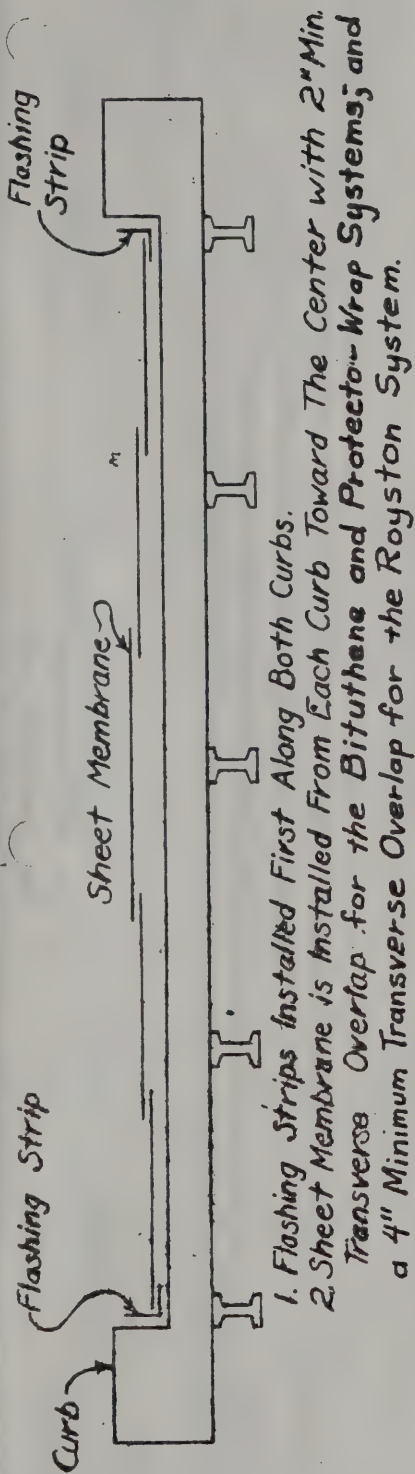 Flashing Strip
Flashing
Strip
Curb
Sheet Membrane
1. Flashing Strips Installed First Along Both Curbs.
2. Sheet Membrane is Installed From Each Curb Toward The Center with 2" Min.
Transverse Overlap for the Bituthene and Protecto-Wrap Systems; and
a 4" Minimum Transverse Overlap for the Royston System.